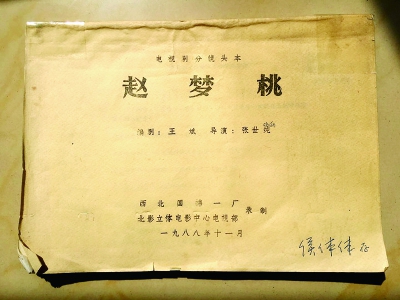 电视剧分镜头本
赵梦桃
编剧：王斌 导演：张世纯
西北国棉一厂
北影立体电影中心电视部 录制
一九八八年十一月